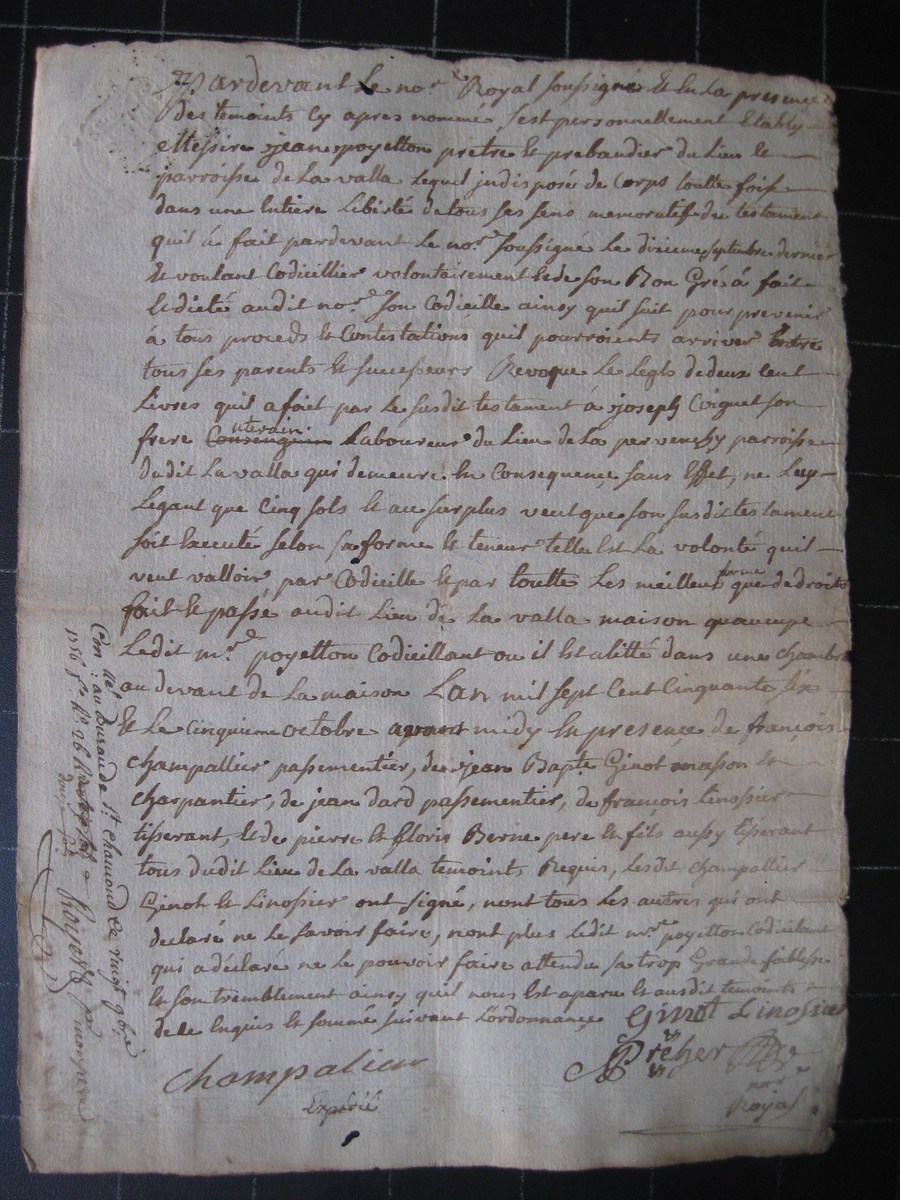 Pardevant Le nore Royal soussigné Et En La presence
Des temoints Cy apres nommé sest personnellement Etably
Messire jean poyetton prêtre Et prebandier du Lieu Et
parroisse de La valla Lequel jndisposée de Corps toutte fois
dans une Entiere Liberté de tous ses sens memoratif du testament
quil á fait pardevant Le nore soussigné Le dixieme septembre dernier
Et voulant Codicillier volontairement Et de son Bon Gré á fait
Et dicté audit nore son Codicille ainsy quil suit pour prevenir
á tous proceds Et Contestations quil pourroients arriver Entre
tous ses parents Et successeurs Revoque Le Legs de deux Cent
Livres quil a fait par Le susdit testament á joseph Coignet son
frere uterain Laboureur du Lieu de La pervenchy parroisse
dudit Lavalla qui demeure En Consequence sans Effet, ne Luy
Legant que Cinq sols Et au surplus veut que son susdit testament
soit Executé selon sa forme Et teneur telle Est La volonté quil
veut valloir par Codicille Et par toutte Les meilleur forme que de droits
fait Et passé audit Lieu de La valla maison quaucupe
Ledit mre poyetton Codicillant ou il Est alitté dans une chambre
au devant de La maison Lan mil sept Cent Cinquante six
Et Le cinquieme octobre avant midy En presence de françois
champallier passementier, de jean Bapte Ginot masson Et
charpantier, de jean dard passementier, de françois Linossier
tisserant, Et de pierre Et floris Berne pere Et fils aussy tisserant
tous dudit Lieu de La valla temoints Requis, Lesdit champallier
Ginot Et Linossier ont signé, nont tous Les autres qui ont
declaré ne Le savoir faire, nont plus Ledit mre poyetton Codicillant
qui a déclaré ne Le pouvoir faire attendu sa trop Grande faiblesse
Et son tremblement ainsy quil nous Est aparu Et ausdit temoints
de Le Enquis Et sommé suivant Lordonnance Ginot Linossier
Champalier
Expedié
nore
Royal
Con llé au bureau de st chamond Le vingt 9bre
1756